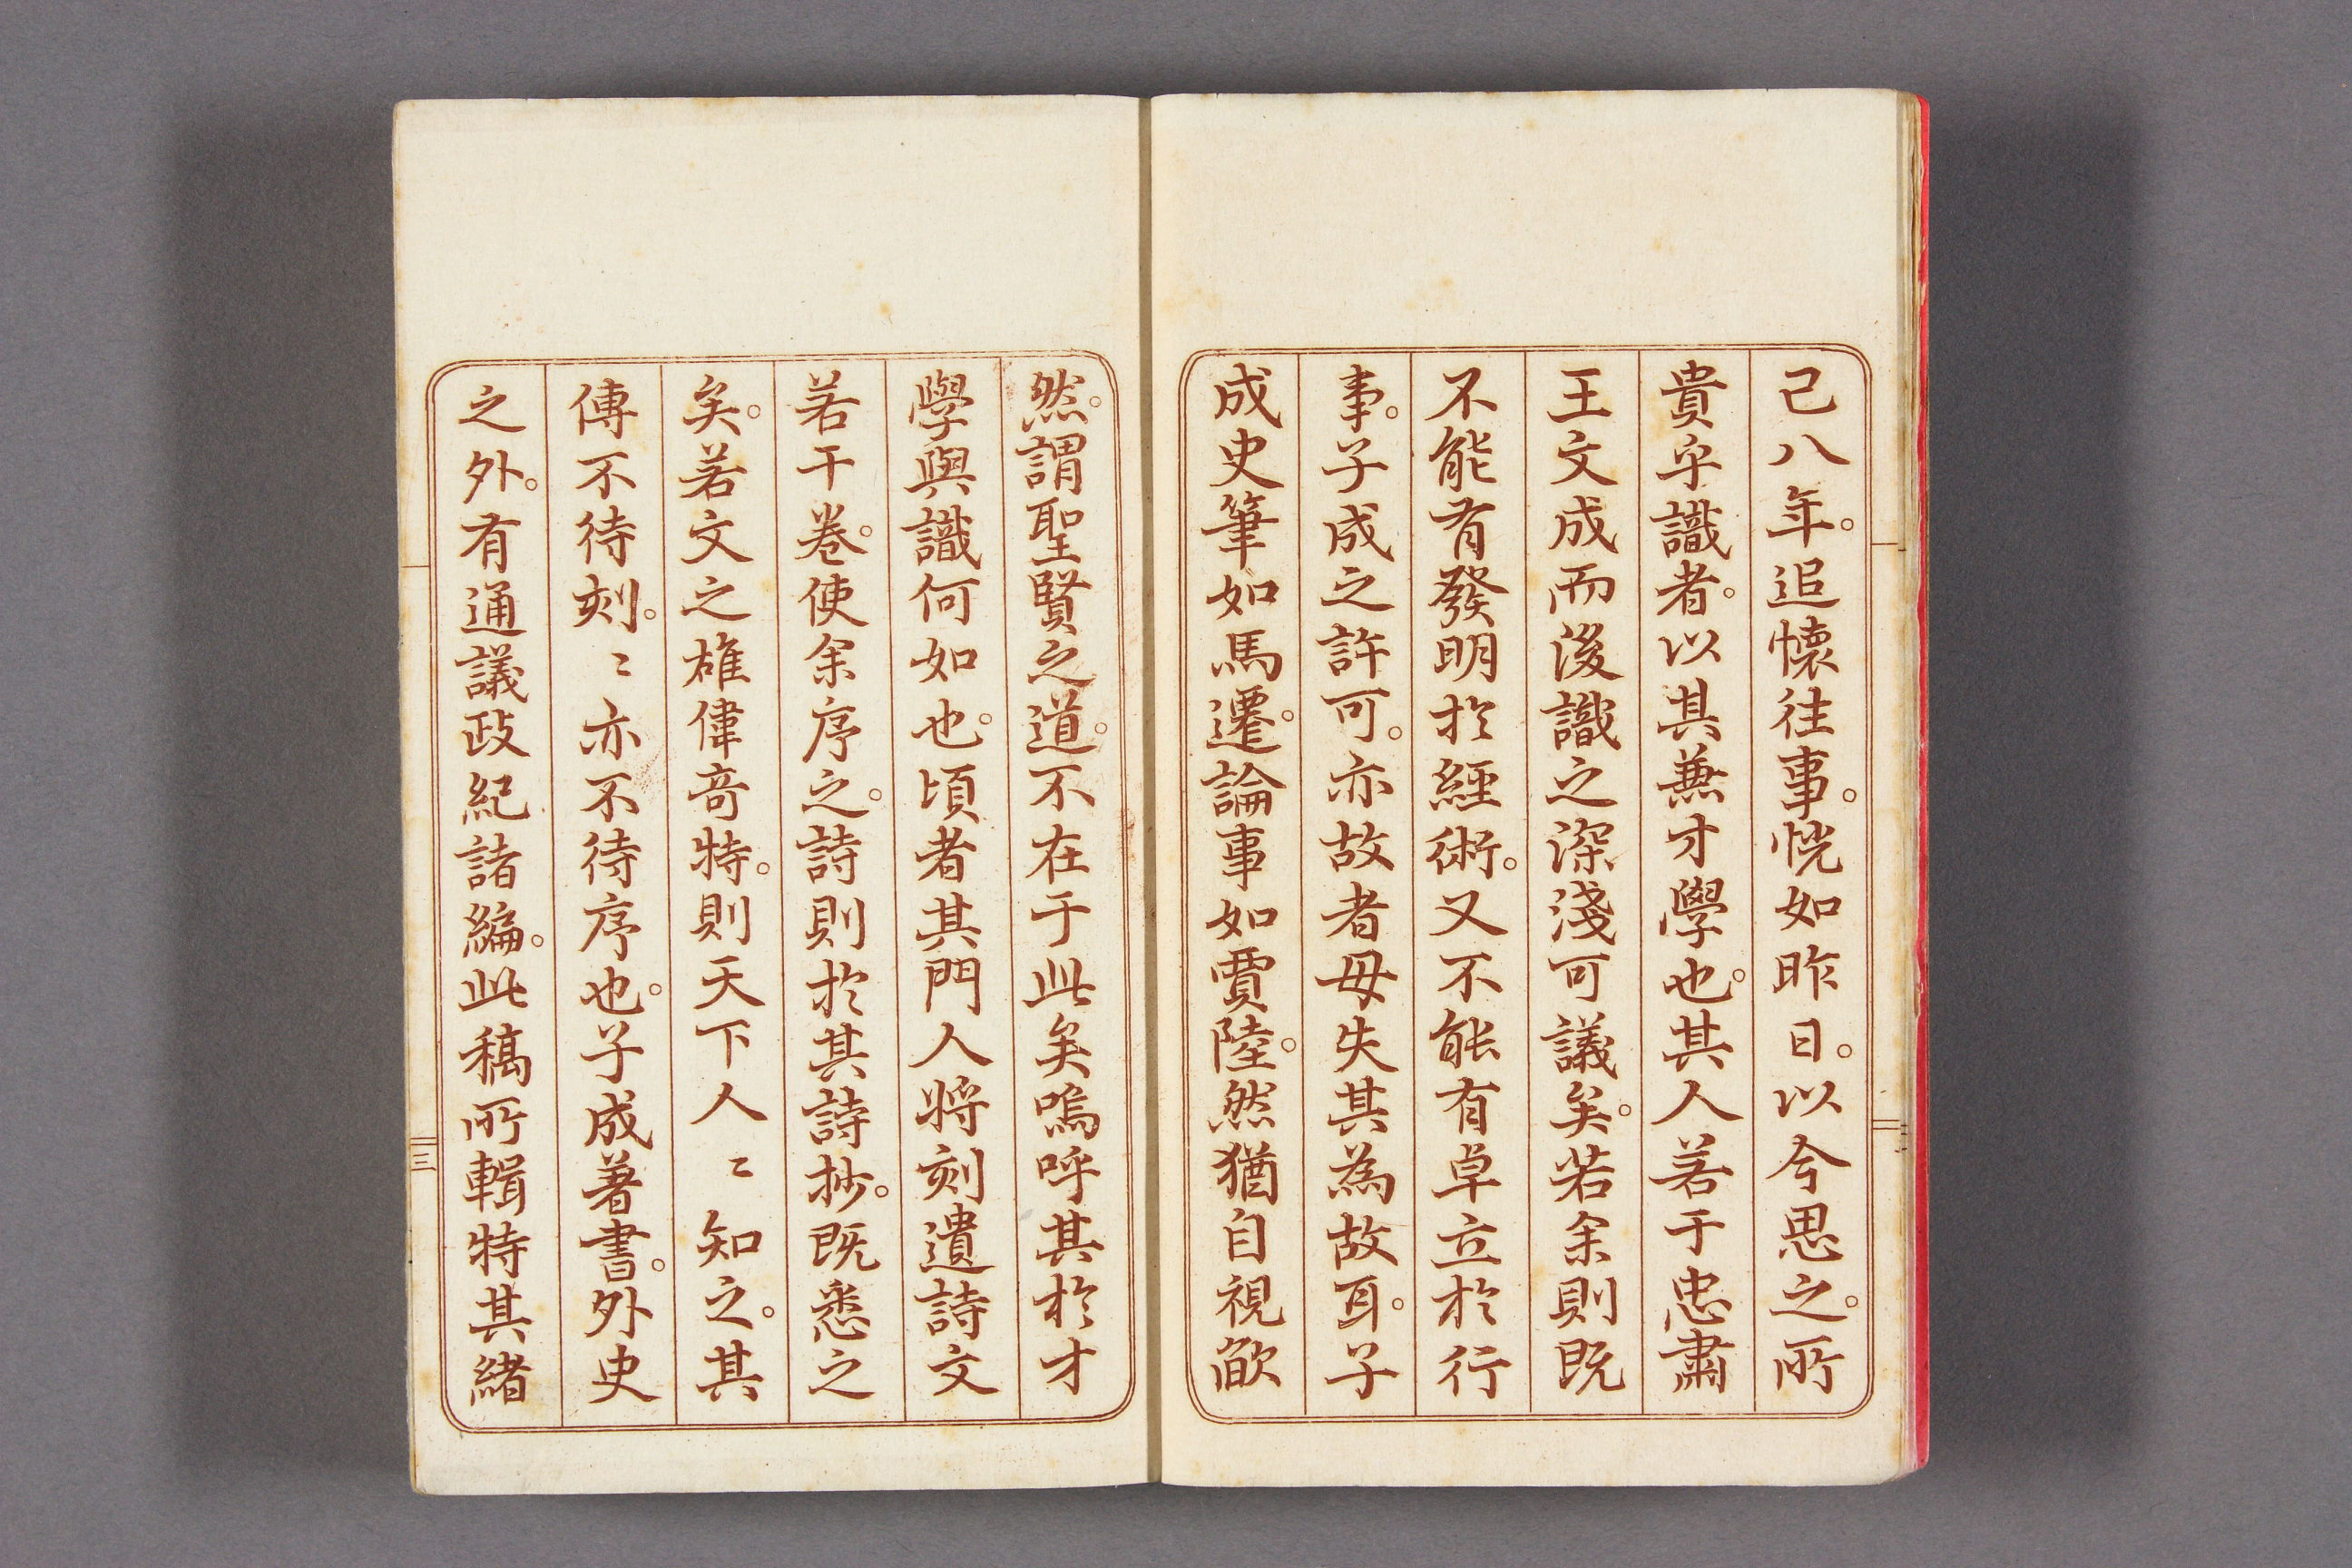 己八年。追懷往事。恍如昨日。以今思之。所
貴乎識者。以其兼才學也。其人若于忠肅
王文成而後識之深淺可議矣。若余則既
不能有發明於經術。又不能有卓立於行
事。子成之許可。亦故者毋失其為故耳。子
成史筆如馬遷。論事如賈陸。然猶自視欿
然。謂聖賢之道。不在于此矣嗚呼其於才
學與識何如也。頃者其門人將刻遺詩文
若干卷。使余序之。詩則於其詩抄。既悉之
矣。若文之雄偉奇特。則天下人〻知之。其
傳不待刻。〻亦不待序也。子成著書。外史
之外。有通議政紀諸編。此稿所輯特其緒
三